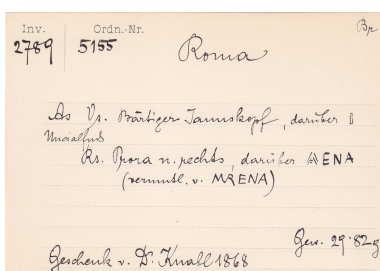 Inv. Ordn.-Nr. Br
2789 5155 Roma
As Vs. Bärtiger Januskopf, darüber I
Uncialfuß
Rs. Prora n. rechts, darüber ENA
(vermutl. v. MRENA)
Gew. 29.82g
Geschenk v. Dr. Knabl 1868